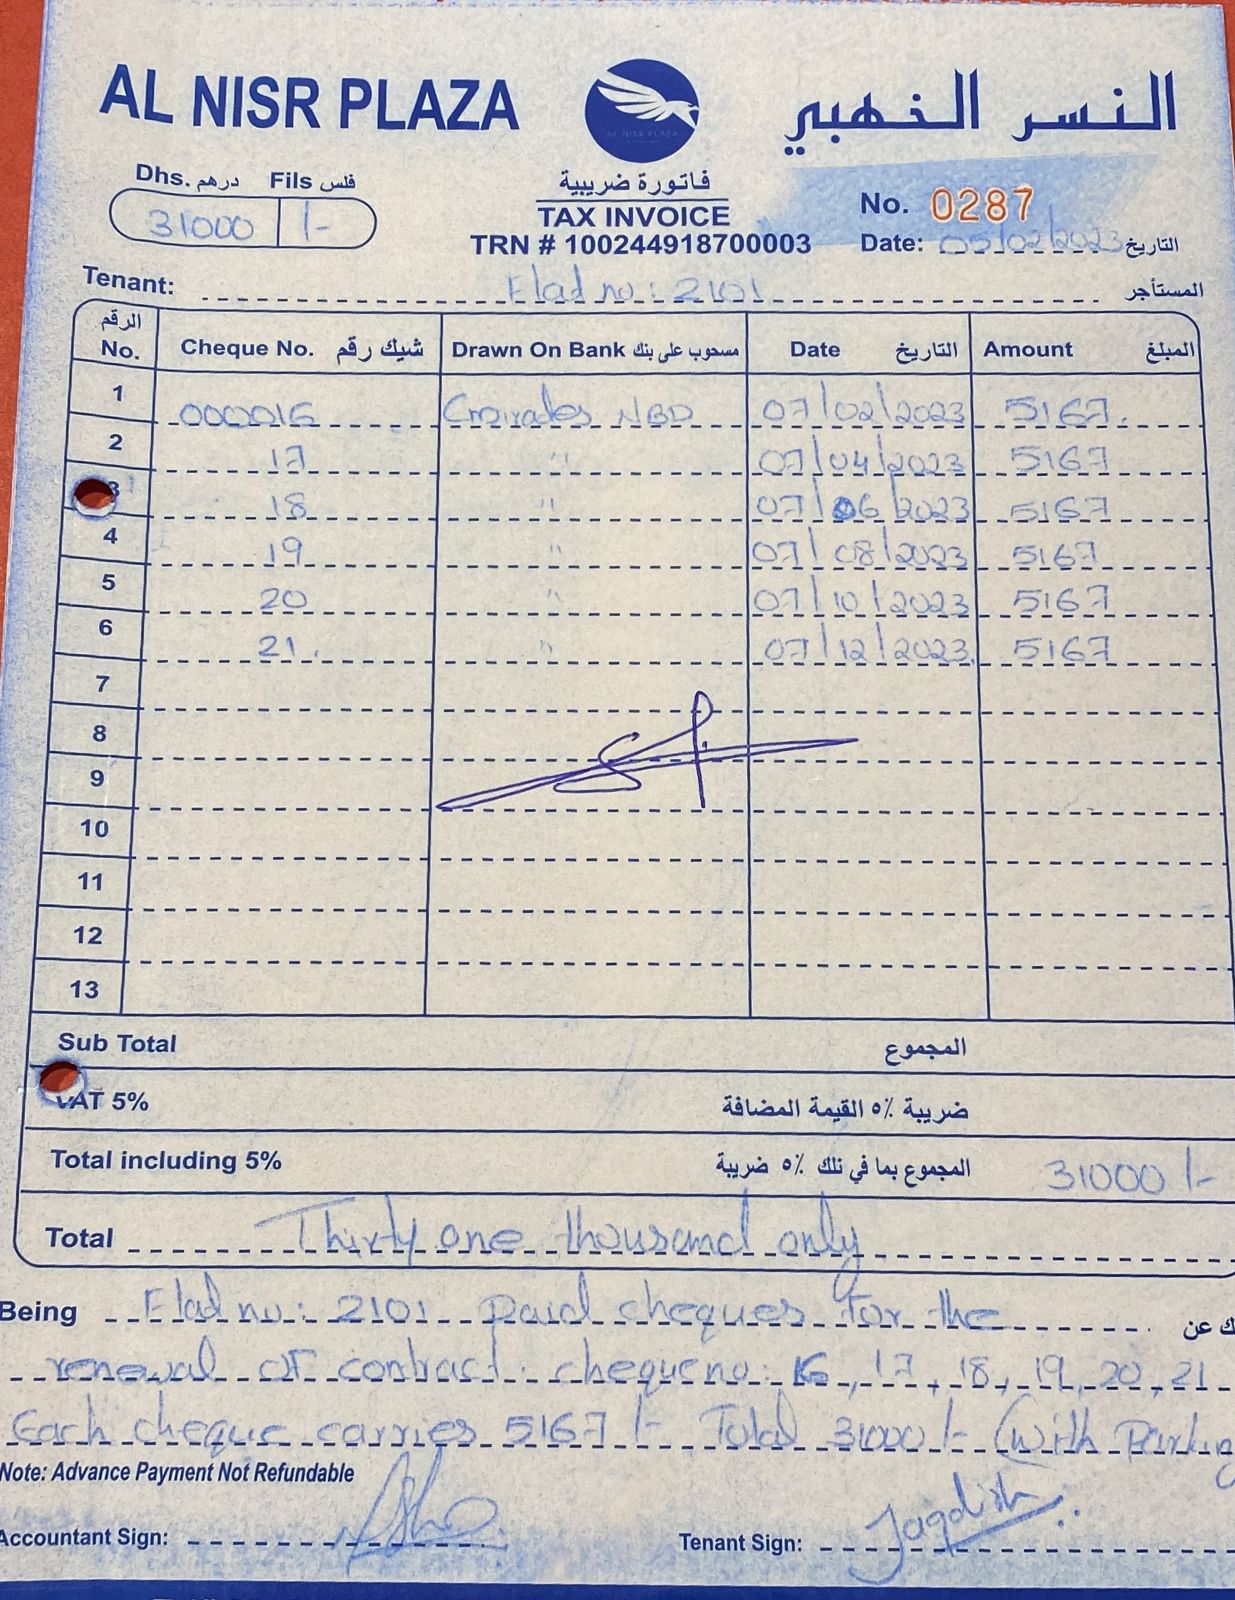 AL NISR PLAZA
AL NISR PLAZA
النسر الخهبي
Dhs. درهم Fils فلس
31000 /-
فاتورة ضريبية
TAX INVOICE
TRN # 100244918700003
No. 0287
Date: 05/02/2023 التاريخ
Tenant: Flad no: 2101 المستأجر
الرقم No. Cheque No. شيك رقم Drawn On Bank مسحوب على بنك Date التاريخ Amount المبلغ
1 000016 Emirades NBD 07/02/2023 5167.
2 17 " 07/04/2023 5167
3 18 " 07/06/2023 5167
4 19 " 07/08/2023 5167
5 20 " 07/10/2023 5167
6 21. " 07/12/2023. 5167
7
8
9
10
11
12
13
Sub Total المجموع
VAT 5% ضريبة ٥٪ القيمة المضافة
Total including 5% المجموع بما في نلك ٥٪ ضريبة 31000 /-
Total Thirty one thousand only
Being Flad no: 2101 Paid cheques for the ك عن
renewal of contract. cheque no: 16, 17, 18, 19, 20, 21
Each cheque carries 5167 /- Total 31000 /- (With Parking
Note: Advance Payment Not Refundable
Accountant Sign:
Tenant Sign: Jagdish